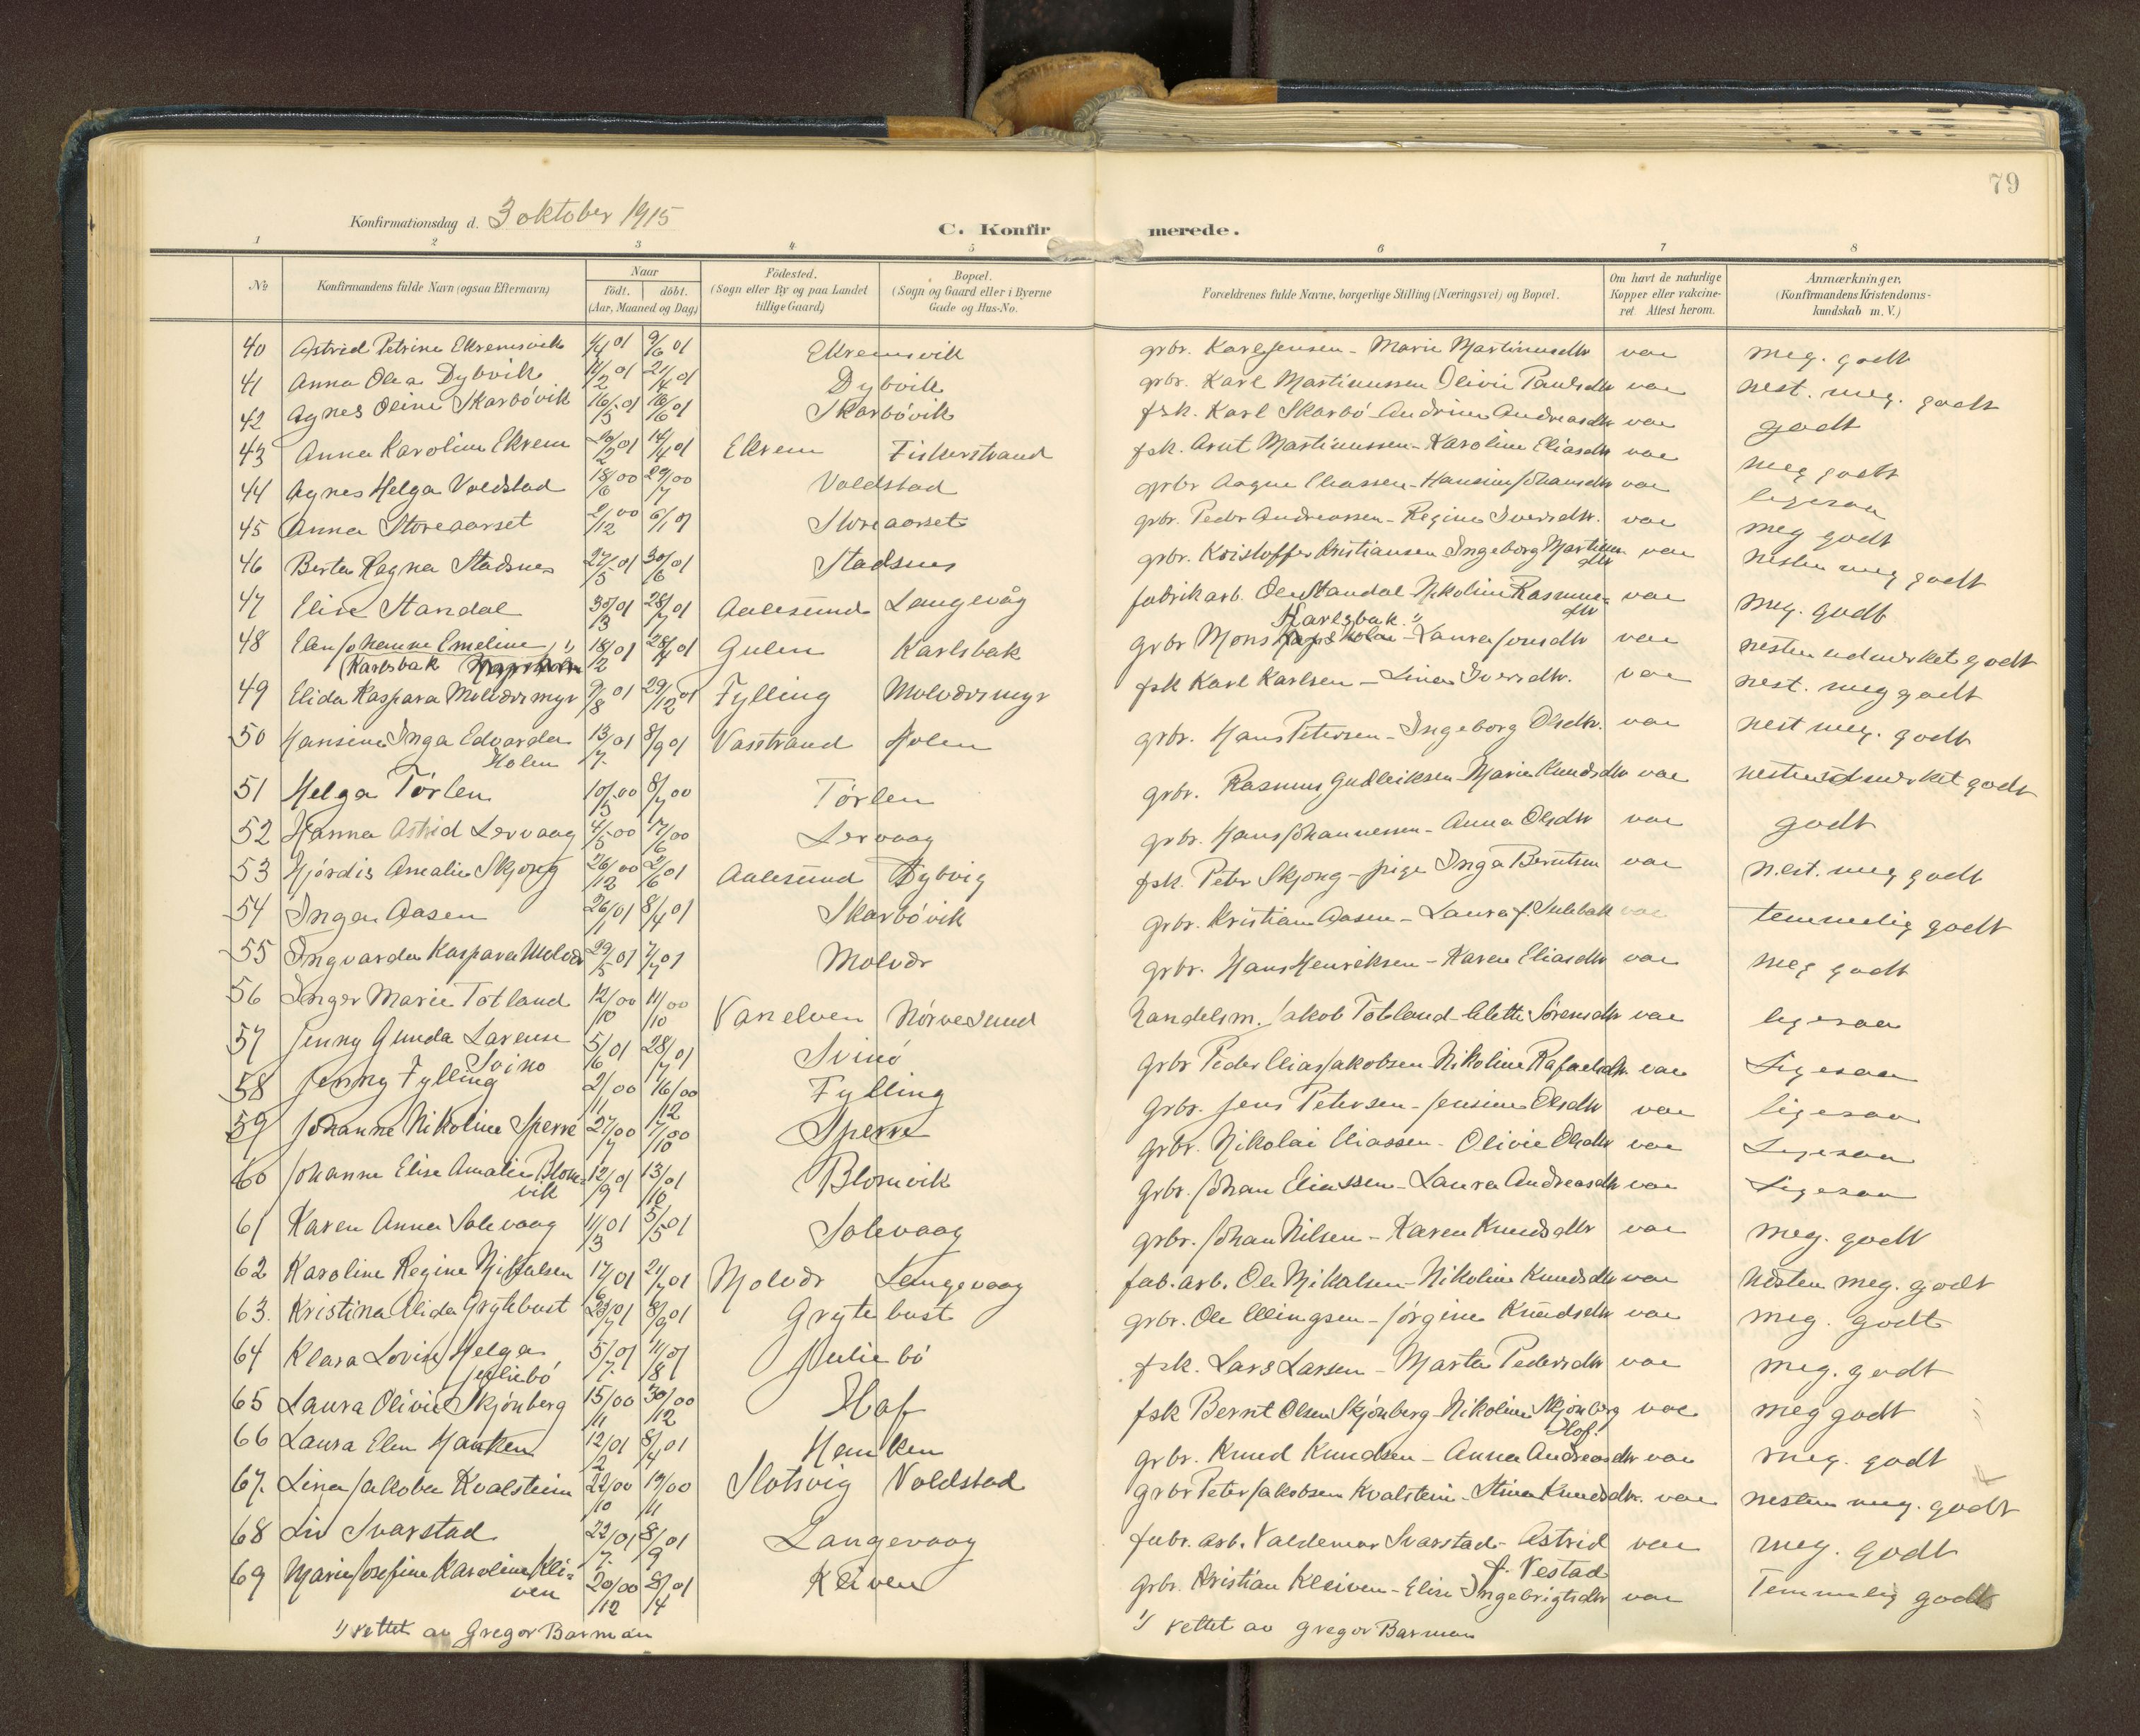 79
Konfirmationsdag d. 3 oktober 1915
C. Konfirmerede.
1 2 3 4 5 6 7 8
No Konfirmandens fulde Navn (ogsaa Efternavn) Naar födt. döbt. (Aar, Maaned og Dag) Födested. (Sogn eller By og paa Landet tillige Gaard) Bopæl. (Sogn og Gaard eller i Byerne Gade og Hus-No. Forældrenes fulde Navne, borgerlige Stilling (Næringsvei) og Bopæl. Om havt de naturlige Kopper eller vakcineret. Attest herom. Anmærkninger. (Konfirmandens Kristendomskundskab m. V.)
40 Astrid Petrine Ekremsvik 4/4 01 9/6 01 Ekremsvik grbr. Karl Jensen - Marie Martinusdtr vac meg. godt
41 Anna Olea Dybvik 11/2 01 21/4 01 Dybvik grbr. Karl Martinussen Olivie Paulsdtr vac nest. meg. godt
42 Agnes Oline Skarbövik 16/5 01 16/6 01 Skarbövik fsk. Karl Skarbö Andrine Andreasdtr vac godt
43 Anna Karoline Ekrem 20/2 01 14/4 01 Ekrem Fiskerstrand fsk. Arnt Martinussen - Karoline Eliasdtr vac meg godt
44 Agnes Helga Voldstad 18/6 00 29/7 00 Voldstad grbr Aagne Eliassen - Hansine Johansdtr vac ligesaa
45 Anna Storeaarset 2/12 00 6/1 01 Storeaarset grbr. Peder Andreassen - Regine Iversdtr. vac meg godt
46 Berta Ragna Stadsnes 27/5 01 30/6 01 Stadsnes grbr. Kristoffer Kristiansen Ingeborg Martinusdtr vac nesten meg godt
47 Elise Standal 30/3 01 28/7 01 Aalesund Langevåg fabrikarb. Ole Standal Nikoline Rasmusdtr vac meg. godt
48 Elen Johanne Emeline 1) 18/2 01 28/4 01 Gulen Karlsbak grbr Mons Karlsbak 1) - Laura Jonsdtr vac nesten udmerket godt
(Karlsbak
49 Elida Kaspara Molværsmyr 9/8 01 29/12 01 Fylling Molværsmyr fsk Karl Karlsen - Lina Iversdtr. vac nest. meg godt
50 Hansine Inga Edvarda Holen 13/7 01 8/9 01 Vasstrand Holen grbr. Hans Petersen - Ingeborg Olsdtr. vac nest meg. godt
51 Helga Törlen 10/5 00 8/7 00 Törlen grbr. Rasmus Gudleiksen - Marie Knudsdtr vac nesten udmerket godt
52 Hanna Astrid Lervaag 4/5 00 17/6 00 Lervaag grbr. Hans Johannessen - Anna Olsdtr vac godt
53 Hjördis Amalie Skjong 26/12 00 2/6 01 Aalesund Dybvig fsk. Peter Skjong - pige Inga Berntsen vac nest. meg godt
54 Inga Aasen 26/1 01 8/4 01 Skarbövik grbr. Kristian Aasen - Laura f. Sulebak vac temmelig godt
55 Ingvarda Kaspara Molvær 29/5 01 7/7 01 Molvær grbr. Hans Henriksen - Karen Eliasdtr vac meg godt
56 Inger Marie Totland 12/10 00 11/10 00 Vanelven Nörvesund Handelsm. Jakob Totland - Alette Sørensdtr vac ligesaa
57 Jenny Gunda Lavense Svinö 5/6 01 28/7 01 Svinö grbr Peder Elias Jakobsen Nikoline Rafaelsdtr. vac Ligesaa
58 Jenny Fylling 2/11 00 16/12 00 Fylling grbr. Jens Petersen - Jensine Olsdtr vac ligesaa
59 Johanne Nikoline Sperre 27/7 00 7/10 00 Sperre grbr. Nikolai Eliassen - Olivie Olsdtr vac Ligesaa
60 Johanne Elise Amalie Blomvik 12/9 01 13/10 01 Blomvik grbr. Johan Eliassen - Laura Andreasdtr vac Ligesaa
61 Karen Anna Solevaag 11/3 01 5/5 01 Solevaag grbr. Johan Nilsen - Karen Knudsdtr vac meg. godt
62 Karoline Regine Mikalsen 17/6 01 21/7 01 Molvær Langevaag fab. arb. Ole Mikalsen - Nikoline Knudsdtr vac nesten meg. godt
63. Kristina Elida Grytebust 23/7 01 8/9 01 Grytebust grbr. Ole Ellingsen - Jörgine Knudsdtr vac meg. godt
64 Klara Lovise Helga Juliebö 5/7 01 11/8 01 Juliebö fsk. Lars Larsen - Marta Pedersdtr vac meg. godt
65 Laura Olivie Skjönberg 15/11 00 30/12 00 Hof fsk Bernt Olsen Skjönberg - Nikoline Skjönberg Hof. vac meg godt
66 Laura Elen Hanken 12/2 01 8/4 01 Hanken grbr. Knud Knudsen - Anna Andreasdtr vac meg. godt
67. Lina Jakoba Kvalstein 22/10 00 19/11 00 Slotsvig Voldstad grbr Peter Jakobsen Kvalstein - Stina Knudsdtr. vac nesten meg. godt
68 Liv Svarstad 22/7 01 8/9 01 Langevaag fabr. arb. Valdemar Svarstad - Astrid f. Vestad vac meg. godt
69 Marie Josefine Karoline Kleiven 20/12 00 8/4 01 Kleiven grbr. Kristian Kleiven - Elise Ingebrigtsdtr vac Temmelig godt
1) rettet av Gregor Barman
1) rettet av Gregor Barman